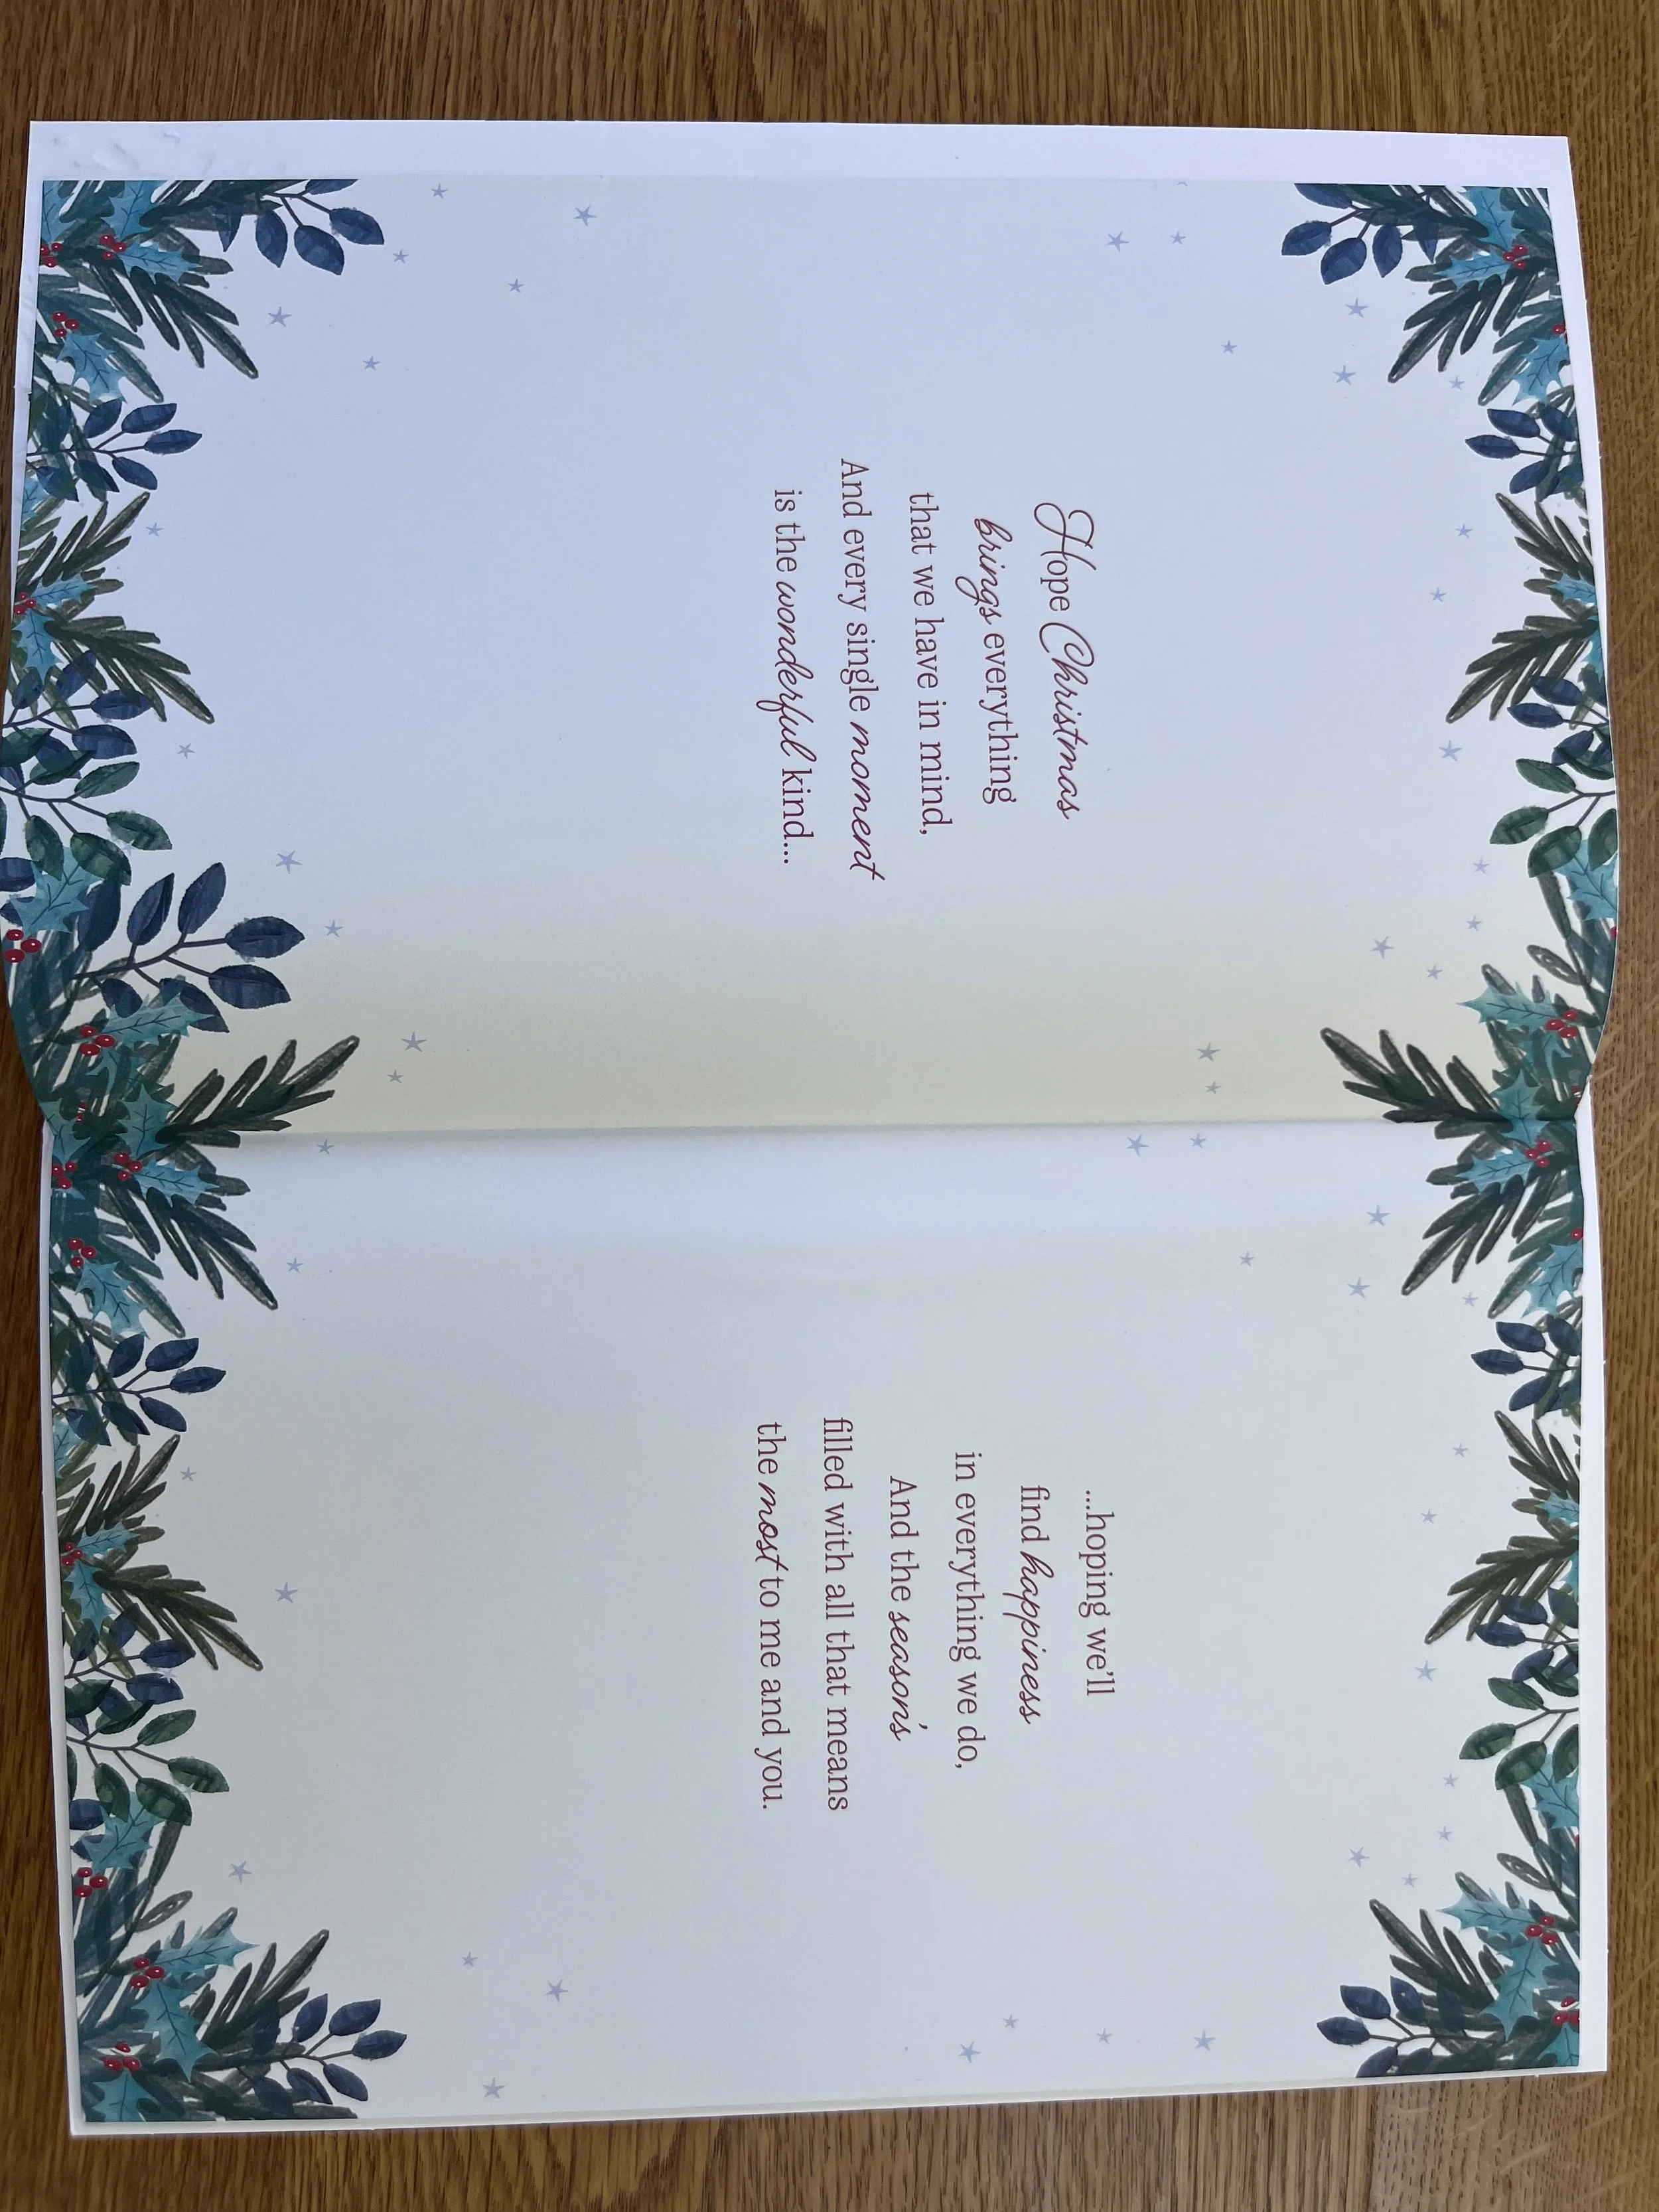 Hope Christmas
brings everything
that we have in mind,
And every single moment
is the wonderful kind...
...hoping we'll
find happiness
in everything we do,
And the season's
filled with all that means
the most to me and you.